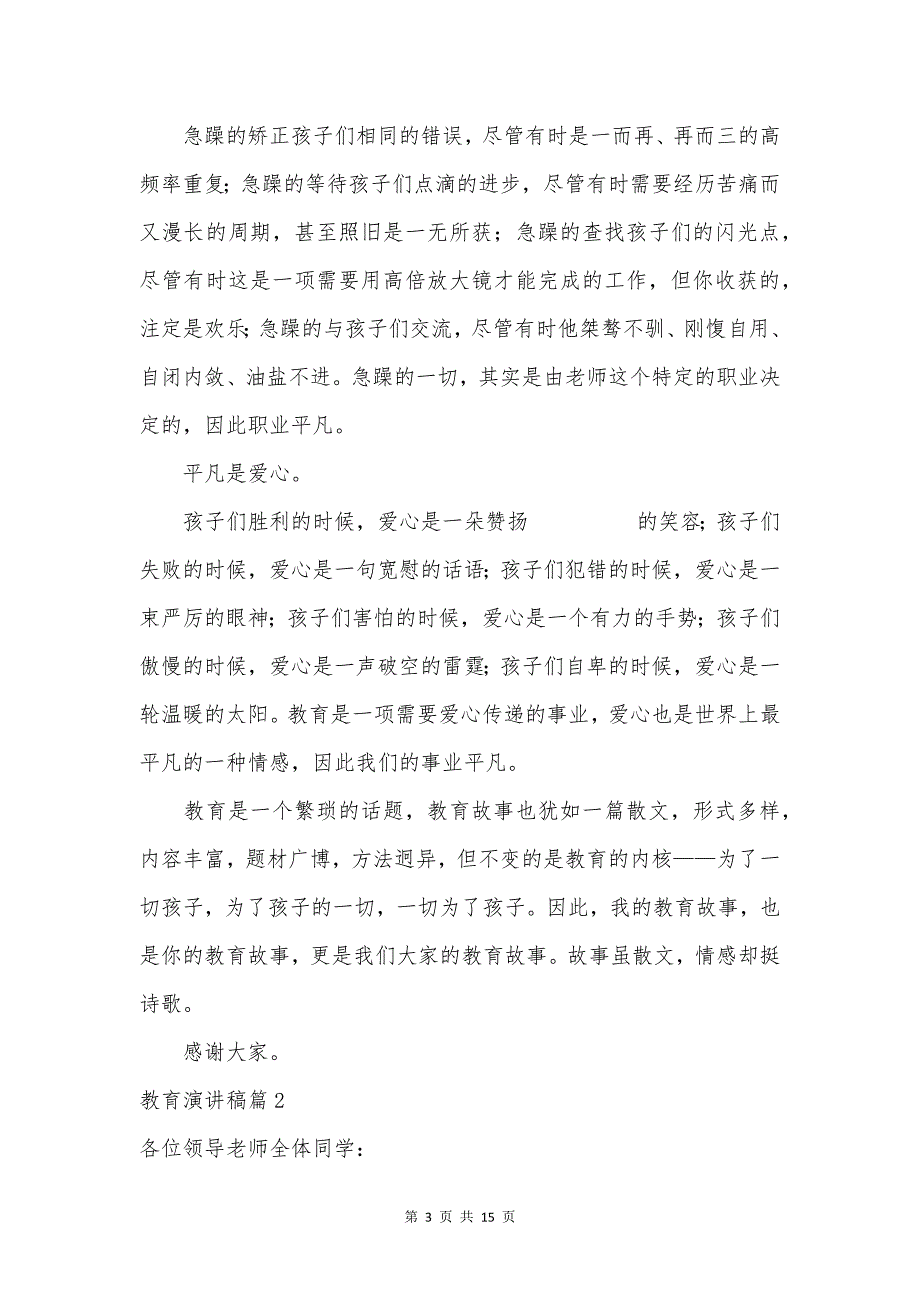 急躁的矫正孩子们相同的错误，尽管有时是一而再、再而三的高
频率重复；急躁的等待孩子们点滴的进步，尽管有时需要经历苦痛而
又漫长的周期，甚至照旧是一无所获；急躁的查找孩子们的闪光点，
尽管有时这是一项需要用高倍放大镜才能完成的工作，但你收获的，
注定是欢乐；急躁的与孩子们交流，尽管有时他桀骜不驯、刚愎自用、
自闭内敛、油盐不进。急躁的一切，其实是由老师这个特定的职业决
定的，因此职业平凡。
平凡是爱心。
孩子们胜利的时候，爱心是一朵赞扬 的笑容；孩子们
失败的时候，爱心是一句宽慰的话语；孩子们犯错的时候，爱心是一
束严厉的眼神；孩子们害怕的时候，爱心是一个有力的手势；孩子们
傲慢的时候，爱心是一声破空的雷霆；孩子们自卑的时候，爱心是一
轮温暖的太阳。教育是一项需要爱心传递的事业，爱心也是世界上最
平凡的一种情感，因此我们的事业平凡。
教育是一个繁琐的话题，教育故事也犹如一篇散文，形式多样，
内容丰富，题材广博，方法迥异，但不变的是教育的内核——为了一
切孩子，为了孩子的一切，一切为了孩子。因此，我的教育故事，也
是你的教育故事，更是我们大家的教育故事。故事虽散文，情感却挺
诗歌。
感谢大家。
教育演讲稿篇2
各位领导老师全体同学：
第 3 页 共 15 页